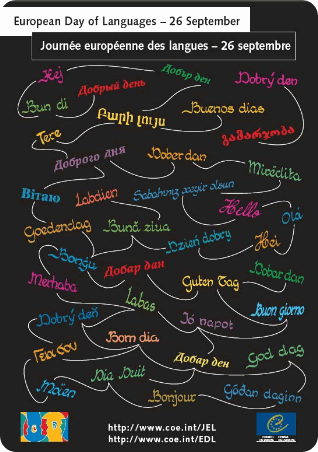 European Day of Languages – 26 September
Journée européenne des langues – 26 septembre
Hej
Добър ден
Dobrý den
Добрый день
Bun di
Buenos días
Բարի լույս
Tere
გამარჯობა
Доброго дня
Dober dan
Mirëdita
Вітаю
Labdien
Sabahınız xeyir olsun
Hello
Olá
Goedendag
Bună ziua
Dzień dobry
Hei
Bonġu
Добар дан
Dobar dan
Merhaba
Guten Tag
Labas
Buon giorno
Dobrý deň
Jó napot
Bom dia
Γεια σου
Добар ден
God dag
Dia Duit
Moïen
Bonjour
Góðan daginn
http://www.coe.int/JEL
http://www.coe.int/EDL